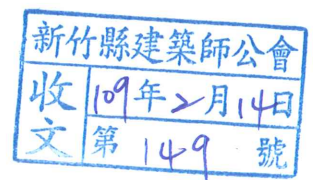 新竹縣建築師公會
收文
109年2月14日
第149號